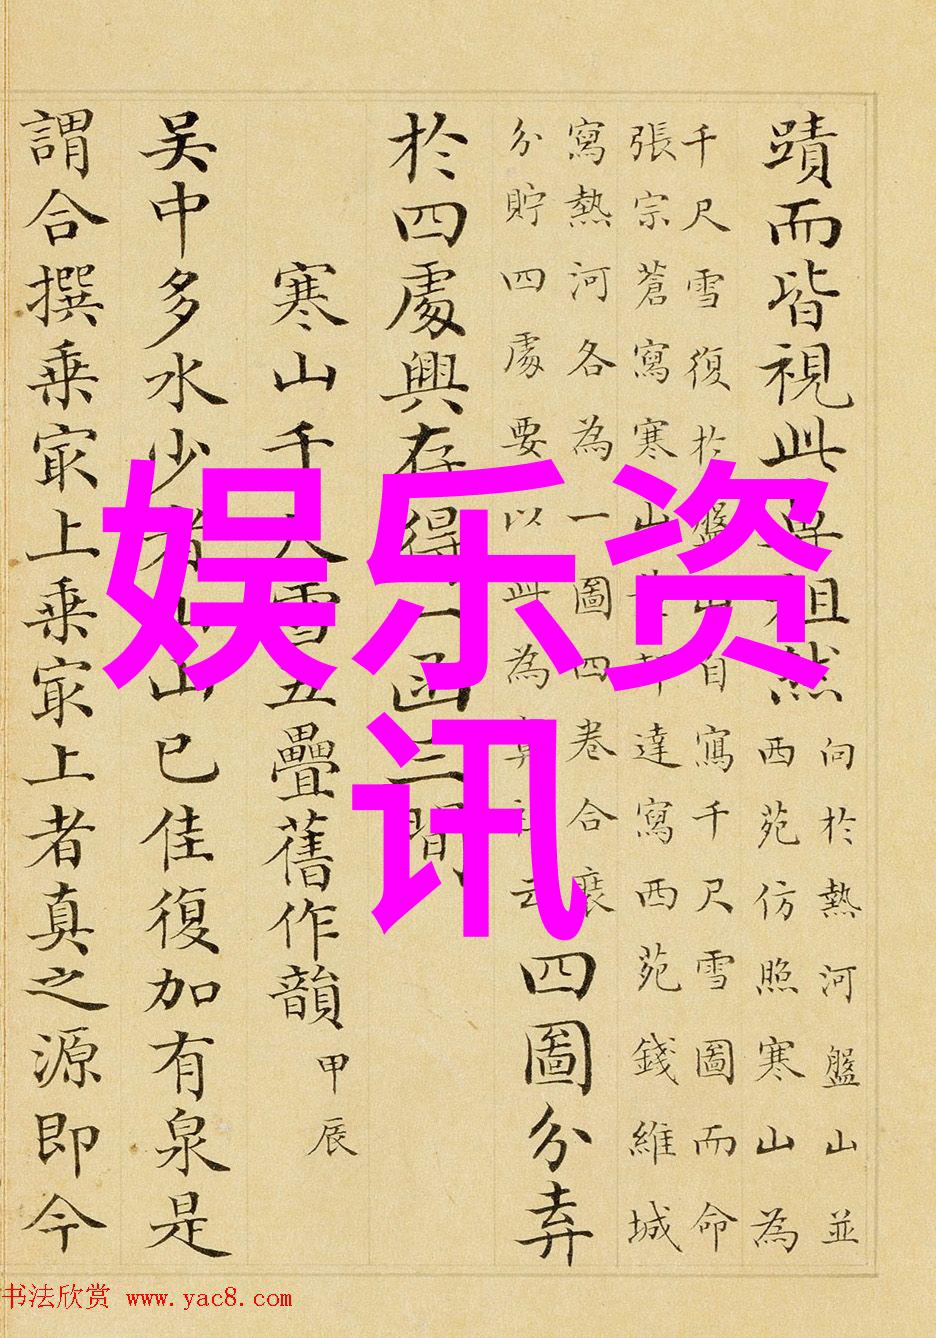 蹟而皆視此
然
向於熱河盤山並
西苑仿照寒山為
千尺雪復於盤山自寫千尺雪圖而命
張宗蒼寫寒山
達寫西苑錢維城
寫熱河各為一圖四卷合裝
分貯四處要以此為
云
四圖分弆
於四處興存得一函三間
寒山千尺雪五疊舊作韻
甲辰
吴中多水少
山已佳復加有泉是
謂合撰乗冣上乗冣上者真之源即今
娱乐资
讯
书法欣赏 www.yac8.com